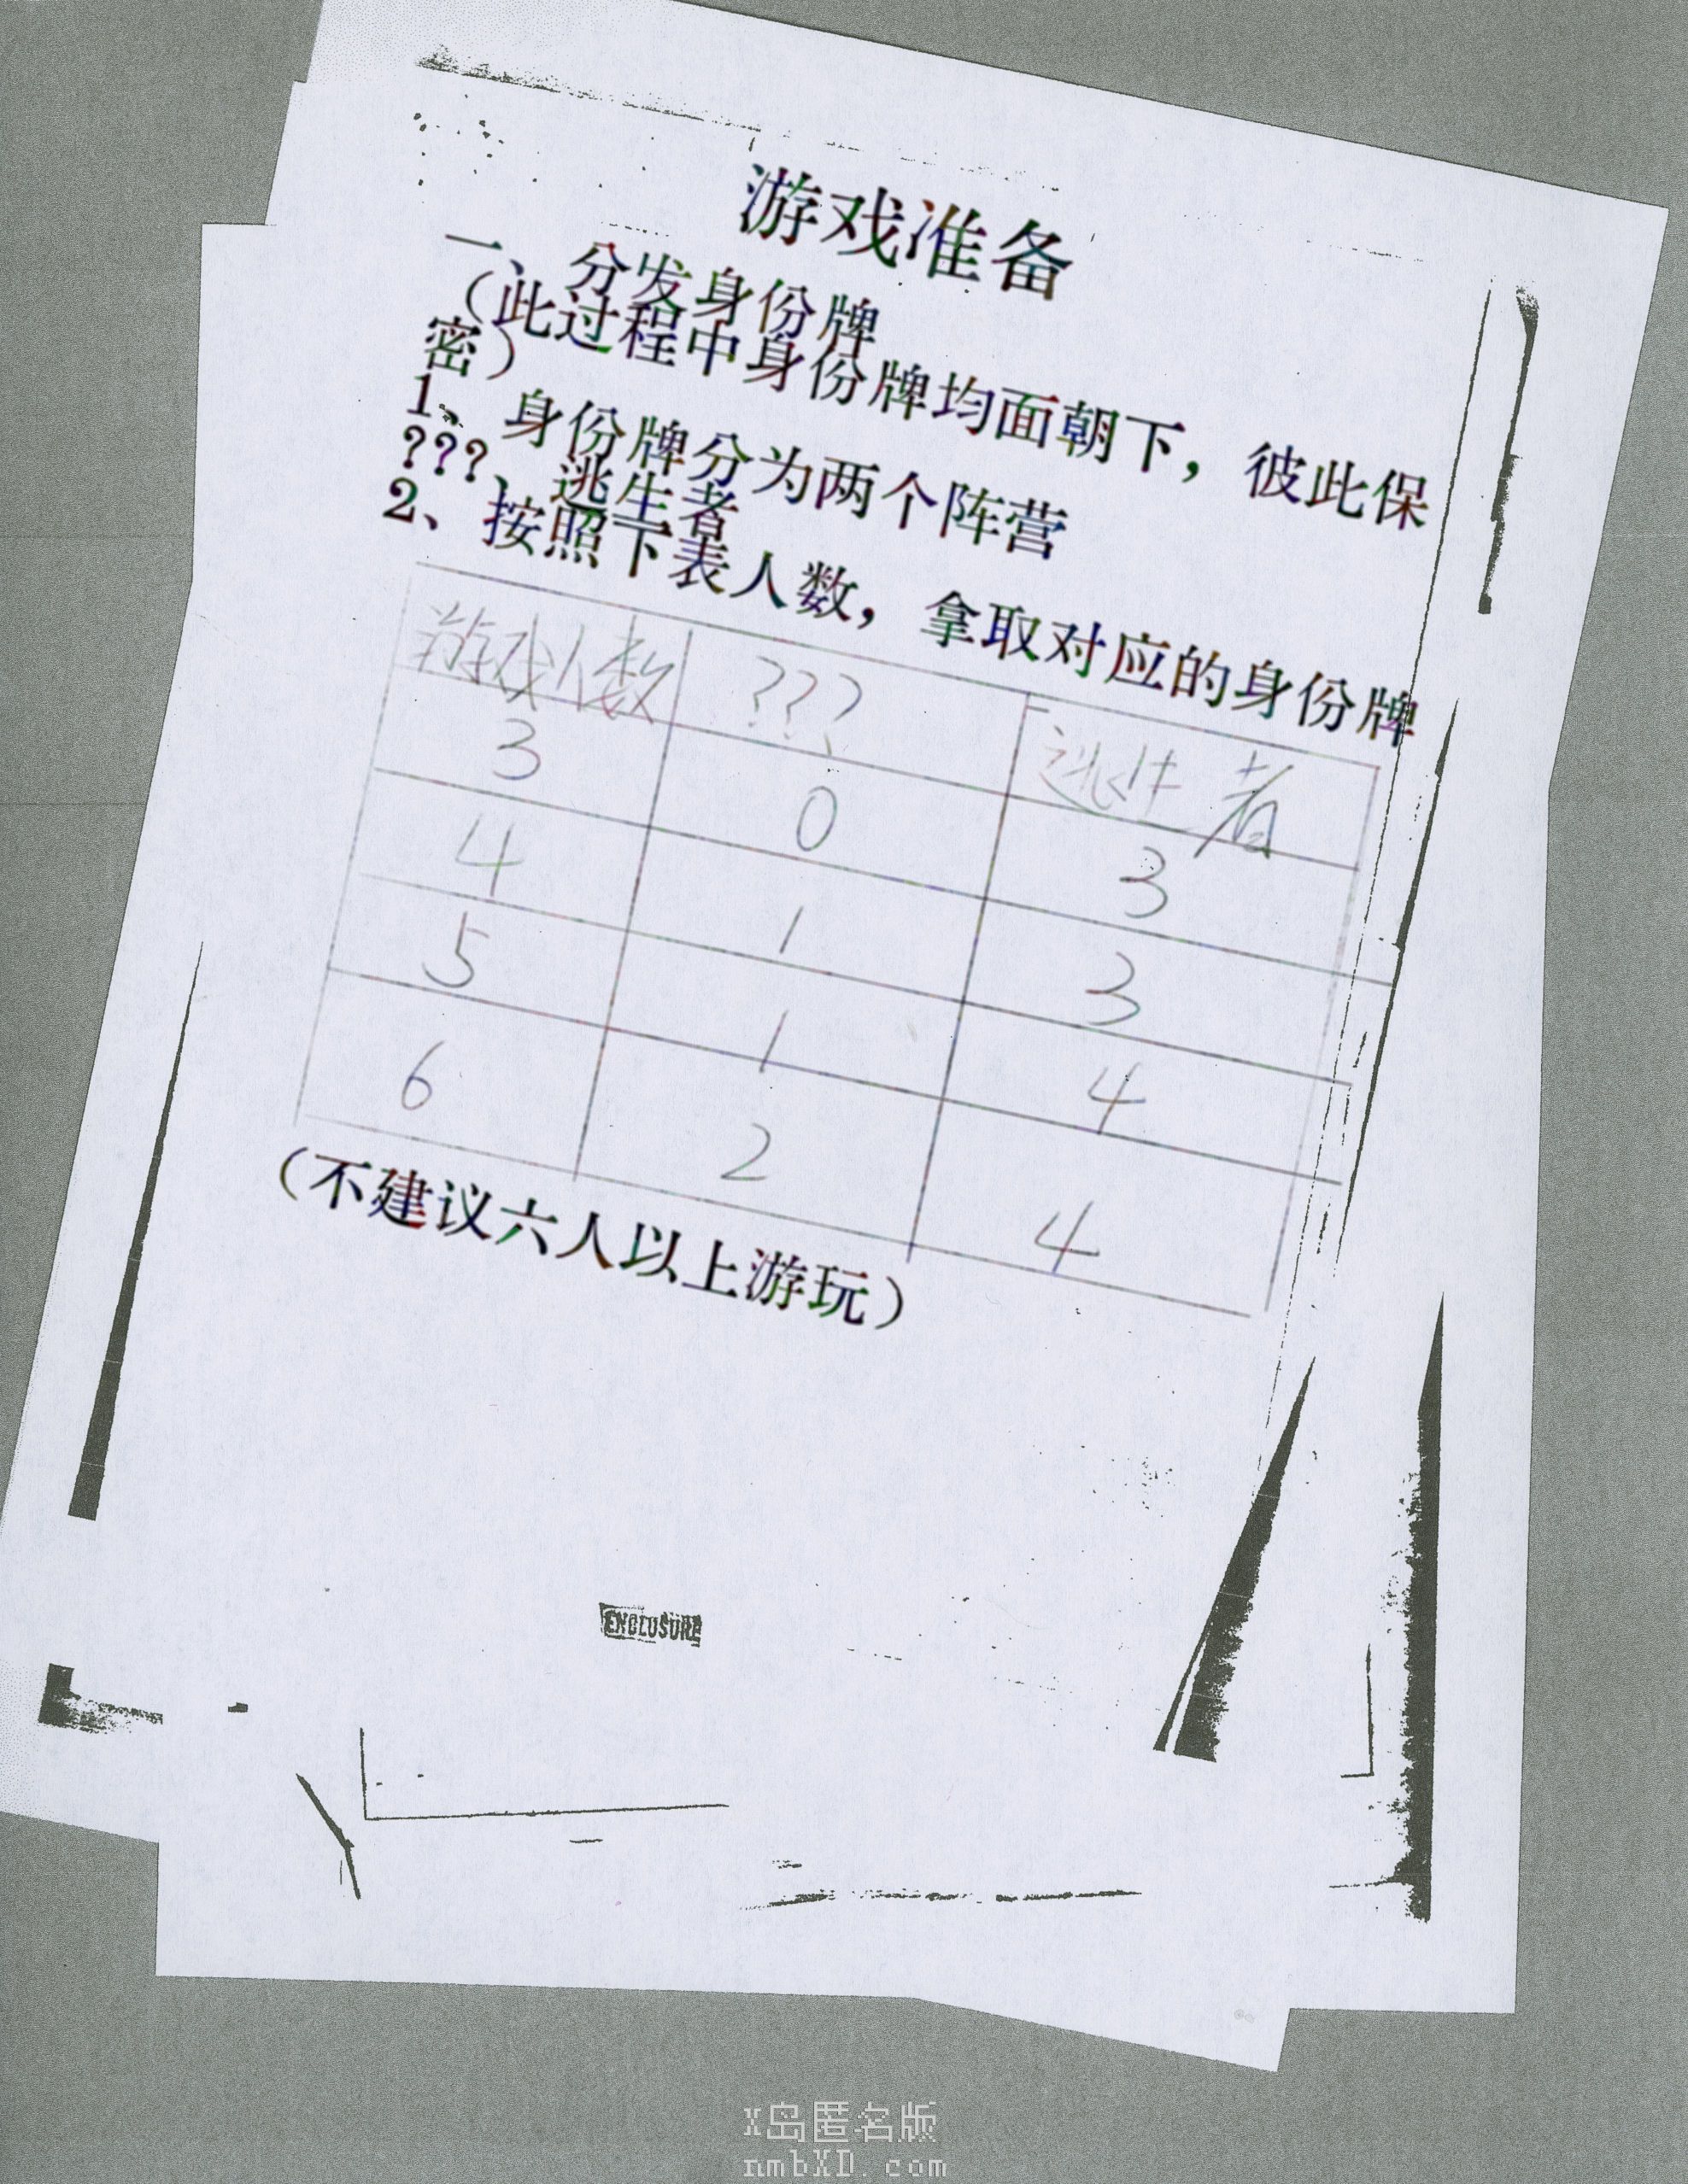 游戏准备
一、分发身份牌
（此过程中身份牌均面朝下，彼此保
密）
1、身份牌分为两个阵营
???、逃生者
2、按照下表人数，拿取对应的身份牌
游戏人数 ??? 逃生者
3 0 3
4 1 3
5 1 4
6 2 4
（不建议六人以上游玩）
ENCLOSURE
X岛匿名版
nmbXD.com